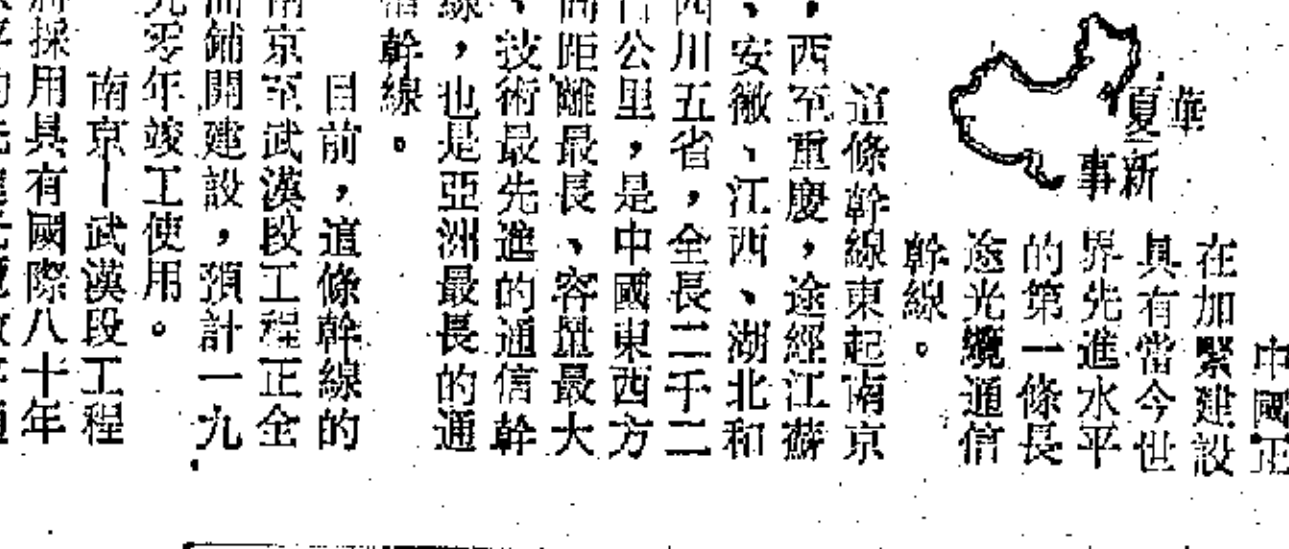 華夏
新事
中國正
在加緊建設
具有當今世
界先進水平
的第一條長
途光纜通信
幹線。
這條幹線東起南京
，西至重慶，途經江蘇
、安徽、江西、湖北和
四川五省，全長二千二
百公里，是中國東西方
向距離最長、容量最大
、技術最先進的通信幹
線，也是亞洲最長的通
信幹線。
目前，這條幹線的
南京至武漢段工程正全
面鋪開建設，預計一九
九零年竣工使用。
南京—武漢段工程
將採用具有國際八十年